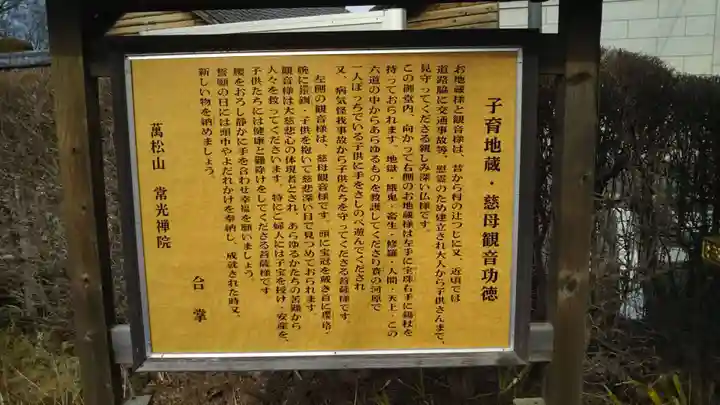 子育地蔵・慈母観音功徳
お地蔵様と観音様は、昔から村の辻つじに又、近頃では
道路脇に交通事故等、慰霊のため建立され大人から子供さんまで、
見守ってくださる親しみ深い仏様です。
この御堂内、向かって右側のお地蔵様は左手に宝珠右手に錫杖を
持っておられます。地獄・餓鬼・畜生・修羅・人間・天上・この
六道の中からあらゆるものを救護してくださり賽の河原で
一人ぼっちでいる子供に手をさしのべ遊んでくだされ
又、病気怪我事故から子供たちを守ってくださる菩薩様です。
左側の観音様は、慈母観音様です。頭に宝冠を戴き首に瓔珞・
腕に釧・子供を抱いて慈悲深い目で見つめておられます。
観音様は大慈悲心の体現者とされ、あらゆるかたちの苦難から
人々を救ってくださいます。特にご婦人には子宝を授け・安産を、
子供たちには健康と難除けをしてくださる菩薩様です
腰をおろし静かに手を合わせ幸福を願いましょう。
誓願の日には頭巾やよだれかけを奉納し、成就された時又、
新しい物を納めましょう。
萬松山 常光禅院
合掌